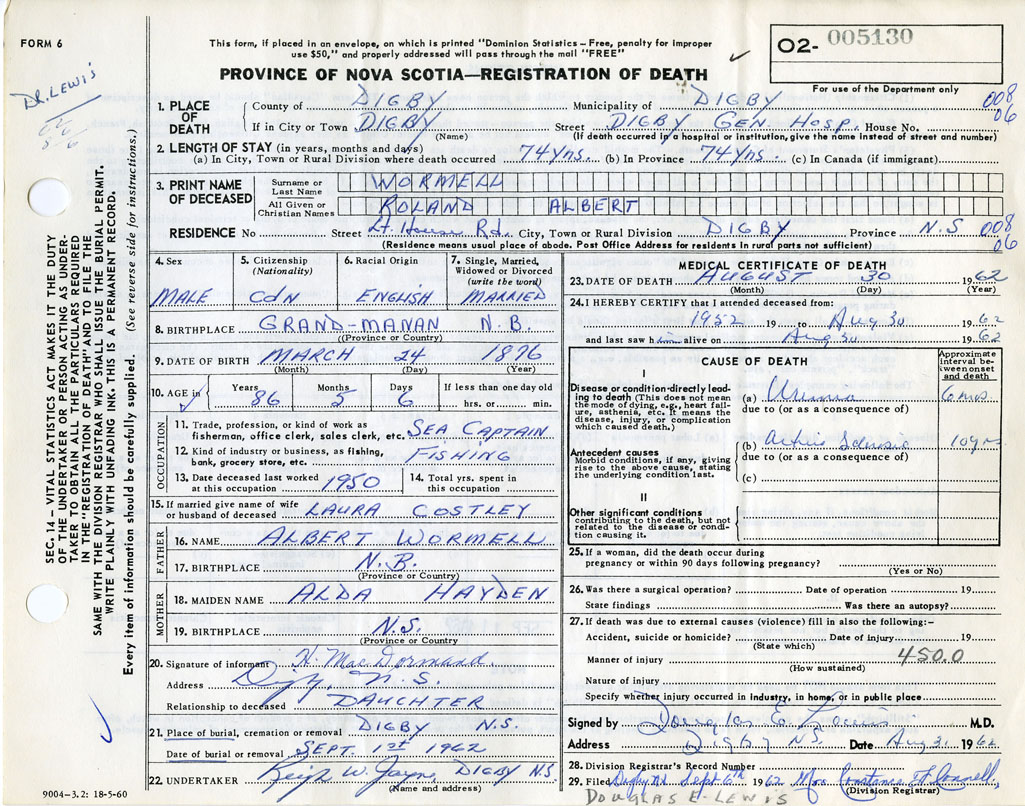 FORM 6
This form, if placed in an envelope, on which is printed "Dominion Statistics – Free, penalty for improper
use $50," and properly addressed will pass through the mail "FREE"
O2- 005130
For use of the Department only
DR. LEWIS
PROVINCE OF NOVA SCOTIA—REGISTRATION OF DEATH
1. PLACE OF DEATH
County of DIGBY Municipality of DIGBY 008
If in City or Town DIGBY Street DIGBY GEN. HOSP. House No. 06
(Name) (If death occurred in a hospital or institution, give the name instead of street and number)
2. LENGTH OF STAY (in years, months and days)
(a) In City, Town or Rural Division where death occurred 74 yrs. (b) In Province 74 yrs. (c) In Canada (if immigrant)
3. PRINT NAME OF DECEASED
Surname or Last Name WORMELL
All Given or Christian Names ROLAND ALBERT
RESIDENCE No Street Lt. House Rd. City, Town or Rural Division DIGBY Province N.S 008
(Residence means usual place of abode. Post Office Address for residents in rural parts not sufficient) 06
4. Sex MALE
5. Citizenship (Nationality) CDN
6. Racial Origin ENGLISH
7. Single, Married, Widowed or Divorced (write the word) MARRIED
8. BIRTHPLACE GRAND-MANAN N.B.
(Province or Country)
9. DATE OF BIRTH MARCH 24 1876
(Month) (Day) (Year)
10. AGE in Years 86 Months 5 Days 6 If less than one day old hrs. or min.
OCCUPATION
11. Trade, profession, or kind of work as fisherman, office clerk, sales clerk, etc. SEA CAPTAIN
12. Kind of industry or business, as fishing, bank, grocery store, etc. FISHING
13. Date deceased last worked at this occupation 1950
14. Total yrs. spent in this occupation
15. If married give name of wife or husband of deceased LAURA COSTLEY
FATHER
16. NAME ALBERT WORMELL
17. BIRTHPLACE N.B.
(Province or Country)
MOTHER
18. MAIDEN NAME ALDA HAYDEN
19. BIRTHPLACE N.S.
(Province or Country
20. Signature of informant H. MacDormand
Address Digby, N.S.
Relationship to deceased DAUGHTER
21. Place of burial, cremation or removal DIGBY N.S.
Date of burial or removal SEPT. 1st 1962
22. UNDERTAKER W. Jayne DIGBY N.S.
(Name and address)
9004-3.2: 18-5-60
MEDICAL CERTIFICATE OF DEATH
23. DATE OF DEATH AUGUST 30 1962
(Month) (Day) (Year)
24. I HEREBY CERTIFY that I attended deceased from:
1952 19 to Aug 30 1962
and last saw him alive on Aug 30 1962
CAUSE OF DEATH
Approximate interval between onset and death
I
Disease or condition directly leading to death (This does not mean the mode of dying, e.g., heart failure, asthenia, etc. It means the disease, injury, or complication which caused death.)
(a) Uremia 6 mos
due to (or as a consequence of)
Antecedent causes
Morbid conditions, if any, giving rise to the above cause, stating the underlying condition last.
(b) 10 yrs.
due to (or as a consequence of)
(c)
II
Other significant conditions contributing to the death, but not related to the disease or condition causing it.
25. If a woman, did the death occur during pregnancy or within 90 days following pregnancy?
(Yes or No)
26. Was there a surgical operation? Date of operation 19
State findings Was there an autopsy?
27. If death was due to external causes (violence) fill in also the following:–
Accident, suicide or homicide? Date of injury 19
(State which)
Manner of injury 450.0
(How sustained)
Nature of injury
Specify whether injury occurred in industry, in home, or in public place
Signed by Douglas E Lewis M.D.
Address Digby N.S. Date Aug 31 1962
28. Division Registrar's Record Number
29. Filed Digby NS Sept 6th 1962 Mrs. Constance H Connell
(Division Registrar)
DOUGLAS E. LEWIS
SEC. 14 – VITAL STATISTICS ACT MAKES IT THE DUTY
OF THE UNDERTAKER OR PERSON ACTING AS UNDER-
TAKER TO OBTAIN ALL THE PARTICULARS REQUIRED
IN THE "REGISTRATION OF DEATH" AND TO FILE THE
SAME WITH THE DIVISION REGISTRAR WHO SHALL ISSUE THE BURIAL PERMIT.
WRITE PLAINLY WITH UNFADING INK. THIS IS A PERMANENT RECORD.
Every item of information should be carefully supplied. (See reverse side for instructions.)